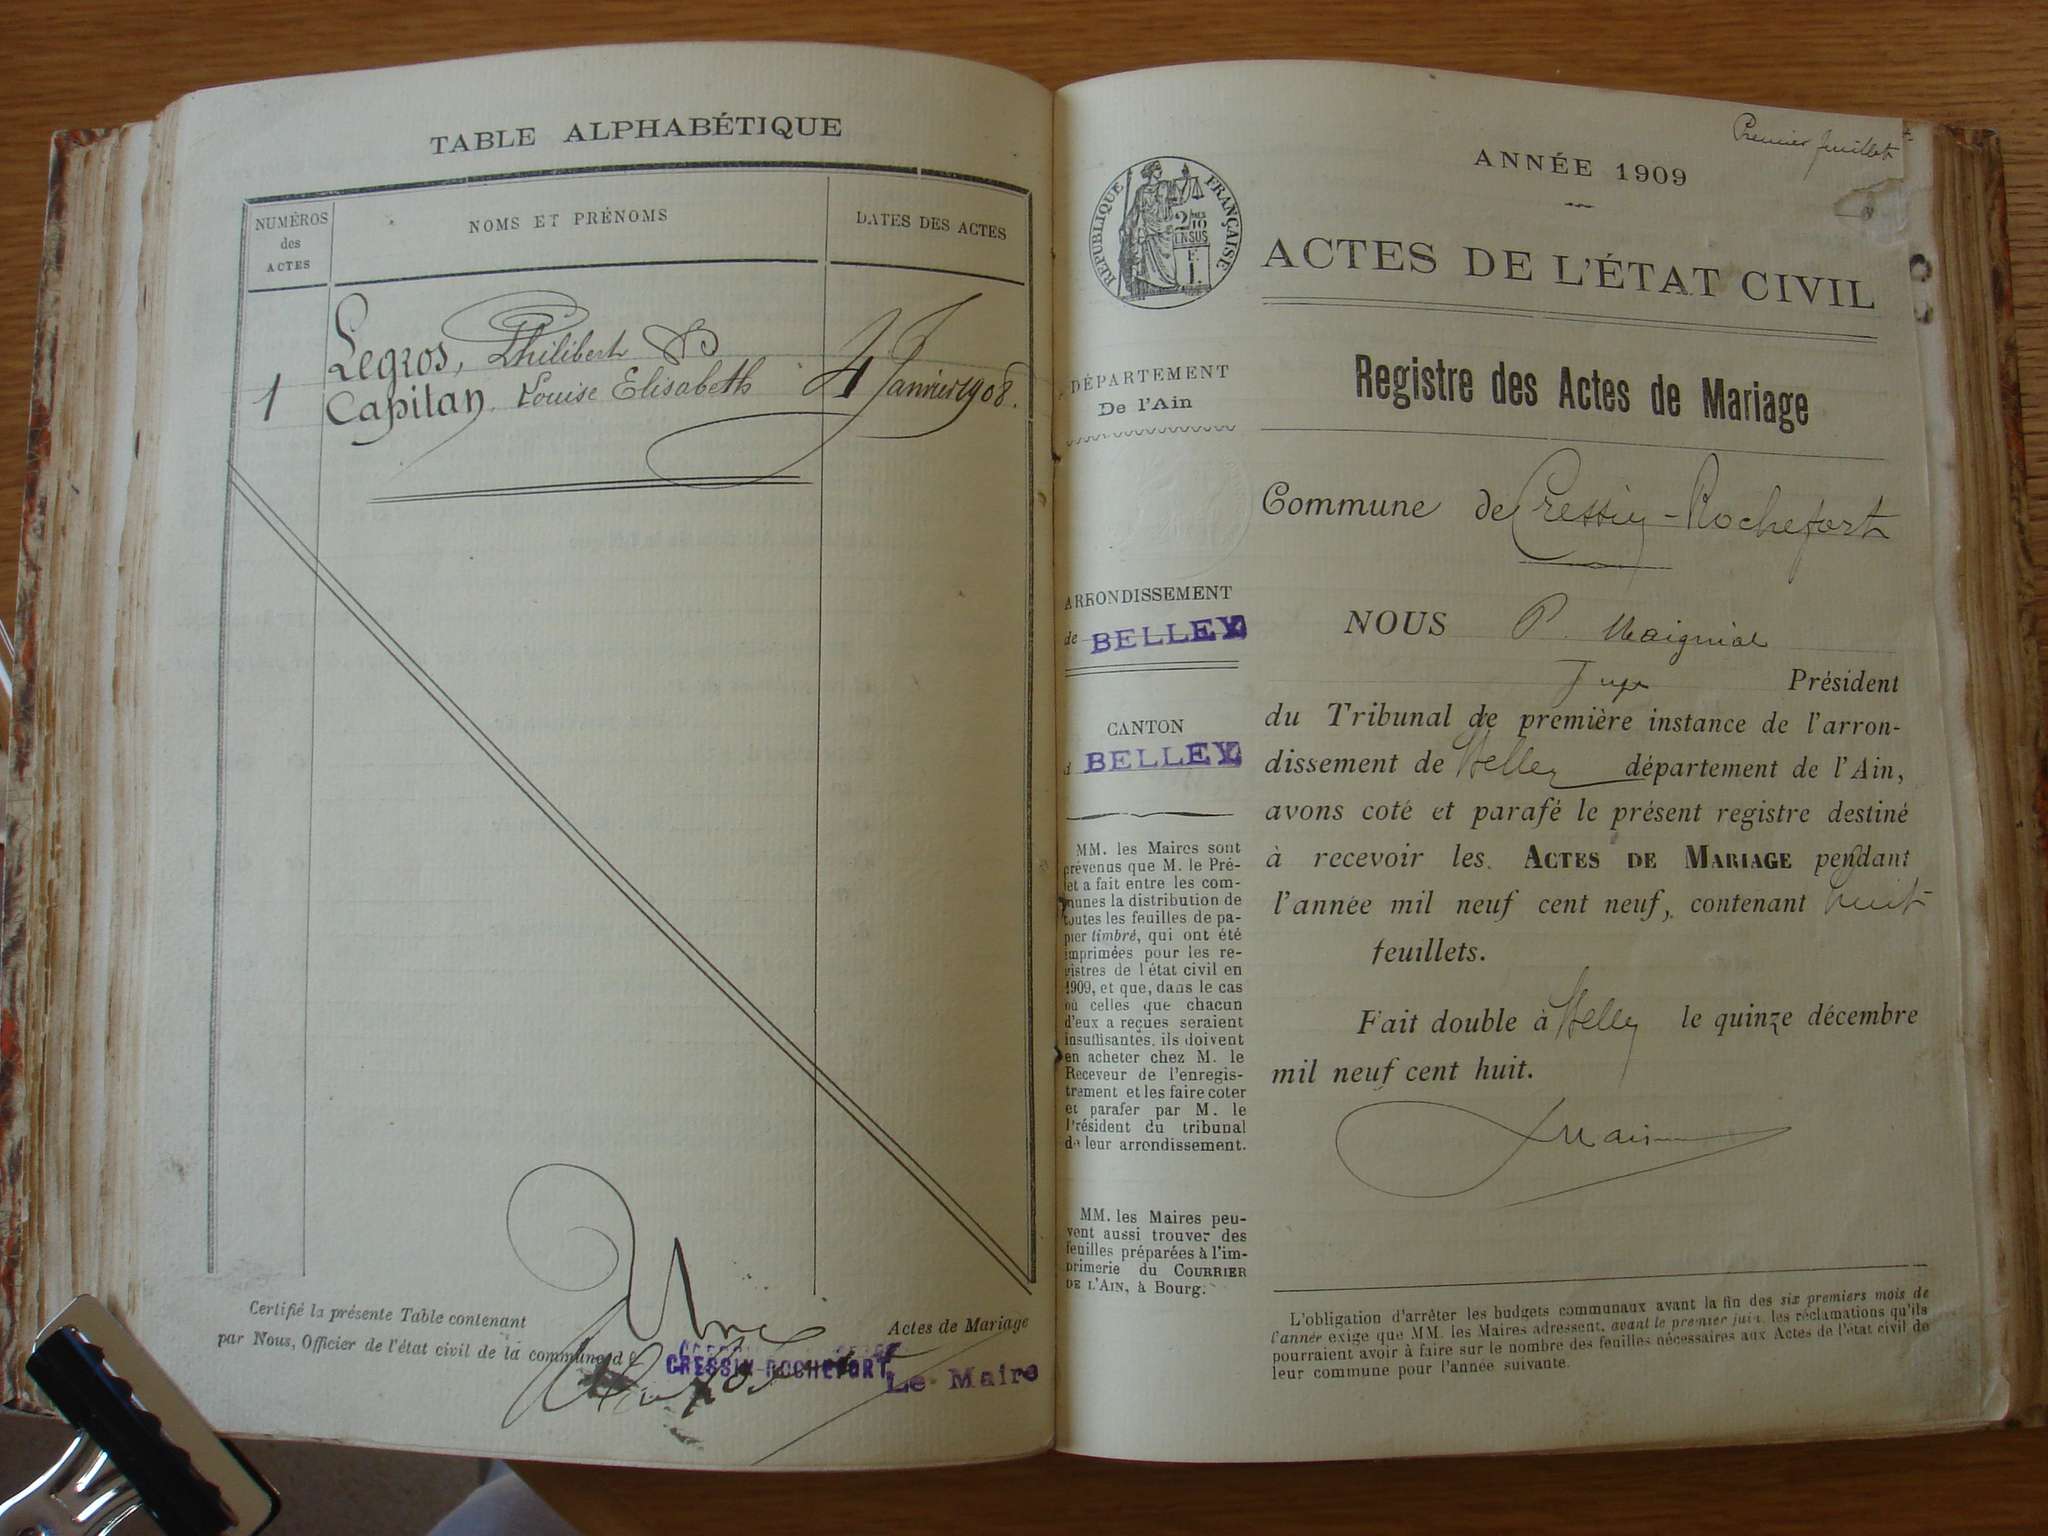 TABLE ALPHABÉTIQUE
NUMÉROS
des
ACTES
NOMS ET PRÉNOMS
DATES DES ACTES
Legros, Philibert &
1 Capitan, Louise Elisabeth 4 Janvier 1908.
Certifié la présente Table contenant Une Actes de Mariage
par Nous, Officier de l'état civil de la commune d
CRESSIN-ROCHEFORT
Le Maire
Premier feuillet
ANNÉE 1909
RÉPUBLIQUE FRANÇAISE
ACTES DE L'ÉTAT CIVIL
Registre des Actes de Mariage
DÉPARTEMENT
De l'Ain
Commune de Cressin-Rochefort
ARRONDISSEMENT
de BELLEY
CANTON
d BELLEY
MM. les Maires sont
prévenus que M. le Pré-
fet a fait entre les com-
munes la distribution de
toutes les feuilles de pa-
pier timbré, qui ont été
imprimées pour les re-
gistres de l'état civil en
1909, et que, dans le cas
où celles que chacun
d'eux a reçues seraient
insuffisantes, ils doivent
en acheter chez M. le
Receveur de l'enregis-
trement et les faire coter
et parafer par M. le
Président du tribunal
de leur arrondissement.
MM. les Maires peu-
vent aussi trouver des
feuilles préparées à l'im-
primerie du COURRIER
DE L'AIN, à Bourg.
NOUS P. Maignial
Juge Président
du Tribunal de première instance de l'arron-
dissement de Belley département de l'Ain,
avons coté et parafé le présent registre destiné
à recevoir les ACTES DE MARIAGE pendant
l'année mil neuf cent neuf, contenant huit
feuillets.
Fait double à Belley le quinze décembre
mil neuf cent huit.
L'obligation d'arrêter les budgets communaux avant la fin des six premiers mois de
l'année exige que MM. les Maires adressent, avant le premier juin, les réclamations qu'ils
pourraient avoir à faire sur le nombre des feuilles nécessaires aux Actes de l'état civil de
leur commune pour l'année suivante.